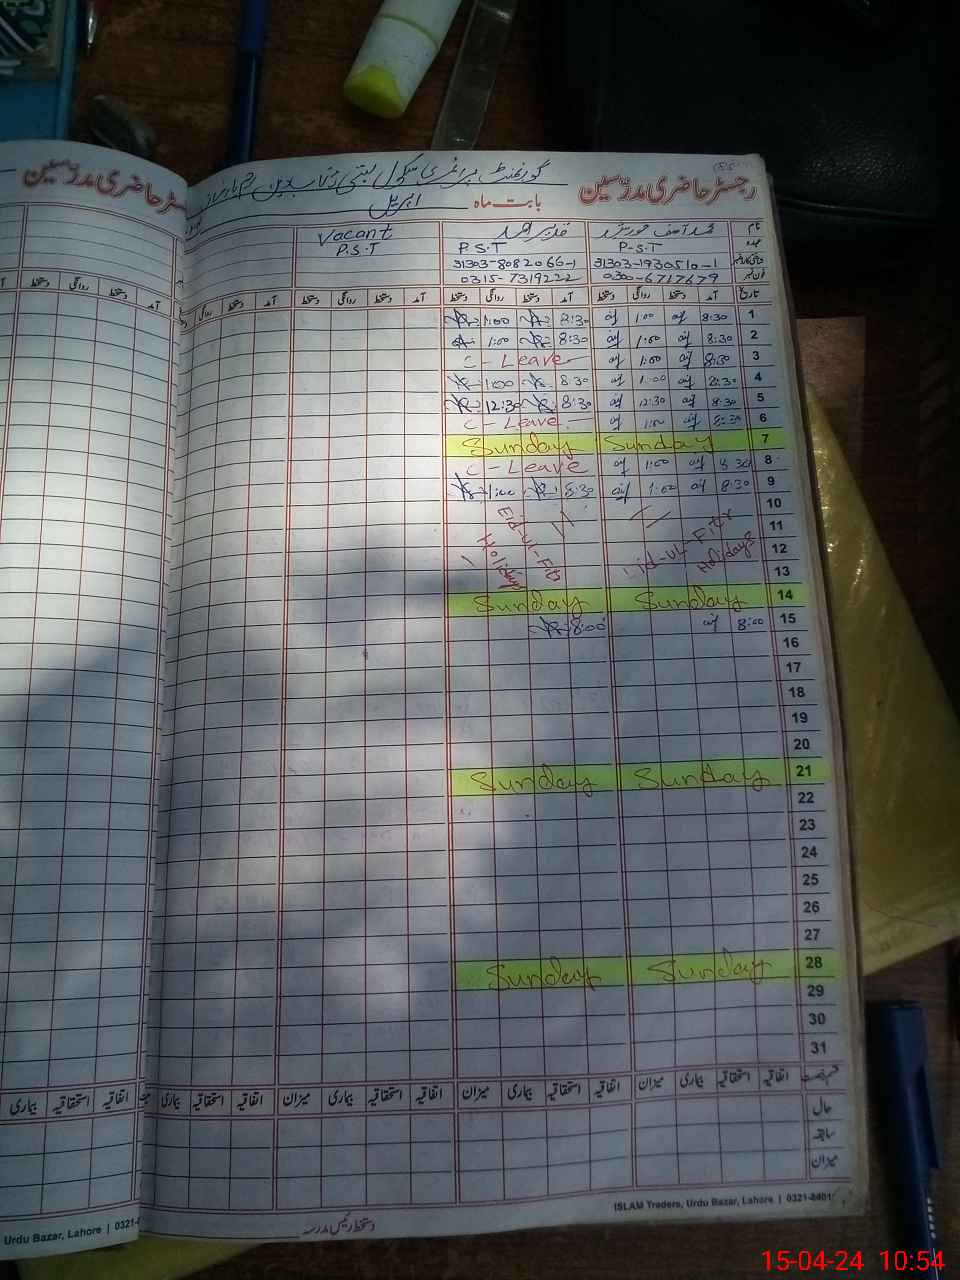 رجسٹر حاضری مدرسین
گورنمنٹ پرائمری سکول بستی
بابت ماہ اپریل
نام محمد آصف خورشید قدیر احمد Vacant
عہدہ P-S-T P.S.T P.S.T
31303-1930510-1 31303-8082066-1
0300-6717679 0315-7319222
تاریخ آمد دستخط روانگی دستخط آمد دستخط روانگی دستخط آمد دستخط روانگی دستخط آمد دستخط روانگی
1 8:30 1:00 8:30 1:00
2 8:30 1:00 8:30 1:00
3 8:30 1:00 C-Leave
4 8:30 1:00 8:30 1:00
5 8:30 12:30 8:30 12:30
6 8:30 1:00 C-Leave
7 Sunday Sunday
8 8:30 1:00 C-Leave
9 8:30 1:00 8:30 1:00
10
11 Eid-ul-Fitr Eid-ul-Fitr
12 Holidays Holidays
13
14 Sunday Sunday
15 8:00 8:00
16
17
18
19
20
21 Sunday Sunday
22
23
24
25
26
27
28 Sunday Sunday
29
30
31
قسم رخصت اتفاقیہ استحقاقیہ بیماری میزان اتفاقیہ استحقاقیہ بیماری میزان اتفاقیہ استحقاقیہ بیماری میزان اتفاقیہ استحقاقیہ بیماری
حال
سابقہ
میزان
ISLAM Traders, Urdu Bazar, Lahore | 0321-8401
دستخط رئیس مدرسہ
سٹر حاضری مدرسین
آمد دستخط روانگی دستخط
اتفاقیہ استحقاقیہ بیماری
Urdu Bazar, Lahore | 0321-
15-04-24 10:54